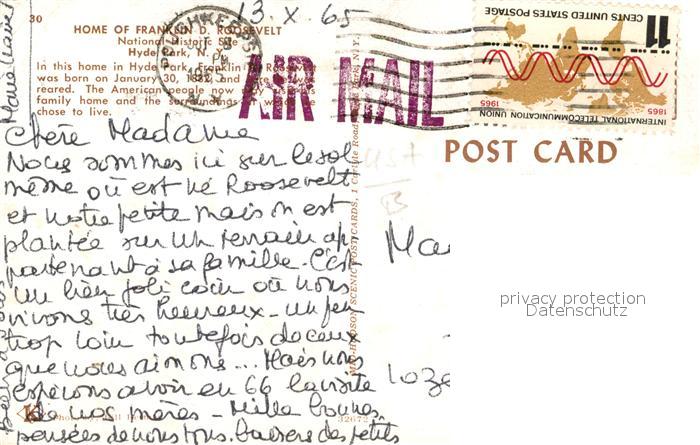 30
13.X.65
HOME OF FRANKLIN D. ROOSEVELT
National Historic Site
Hyde Park, N. Y.
In this home in Hyde Park, Franklin D. Roosevelt
was born on January 30, 1882, and here he was
reared. The American people now
family home and the surroundings
chose to live.
POUGHKEEPSIE
PM
AIR MAIL
11
CENTS UNITED STATES POSTAGE
INTERNATIONAL TELECOMMUNICATION UNION
1865
1965
POST CARD
Chère Madame
Nous sommes ici sur le sol
même où est né Roosevelt
et notre petite maison est
plantée sur un terrain ap
partenant à sa famille. C'est
un bien joli coin où nous
vivons très heureux - un peu
trop loin toutefois de ceux
que nous aimons... Mais nous
espérons avoir en 66 la visite
de nos mères - Mille bonnes
pensées de nous tous. baisers des petits
Marie Claire
MID-HUDSON SCENIC POST CARDS, 1 Carlisle Road
N. Y.
K
32672
Ma
Loze
privacy protection
Datenschutz